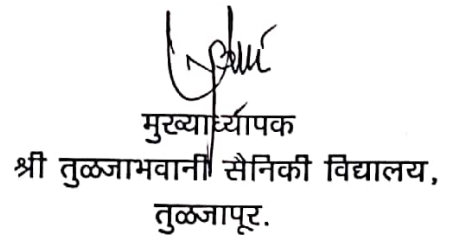 मुख्याध्यापक
श्री तुळजाभवानी सैनिकी विद्यालय,
तुळजापूर.